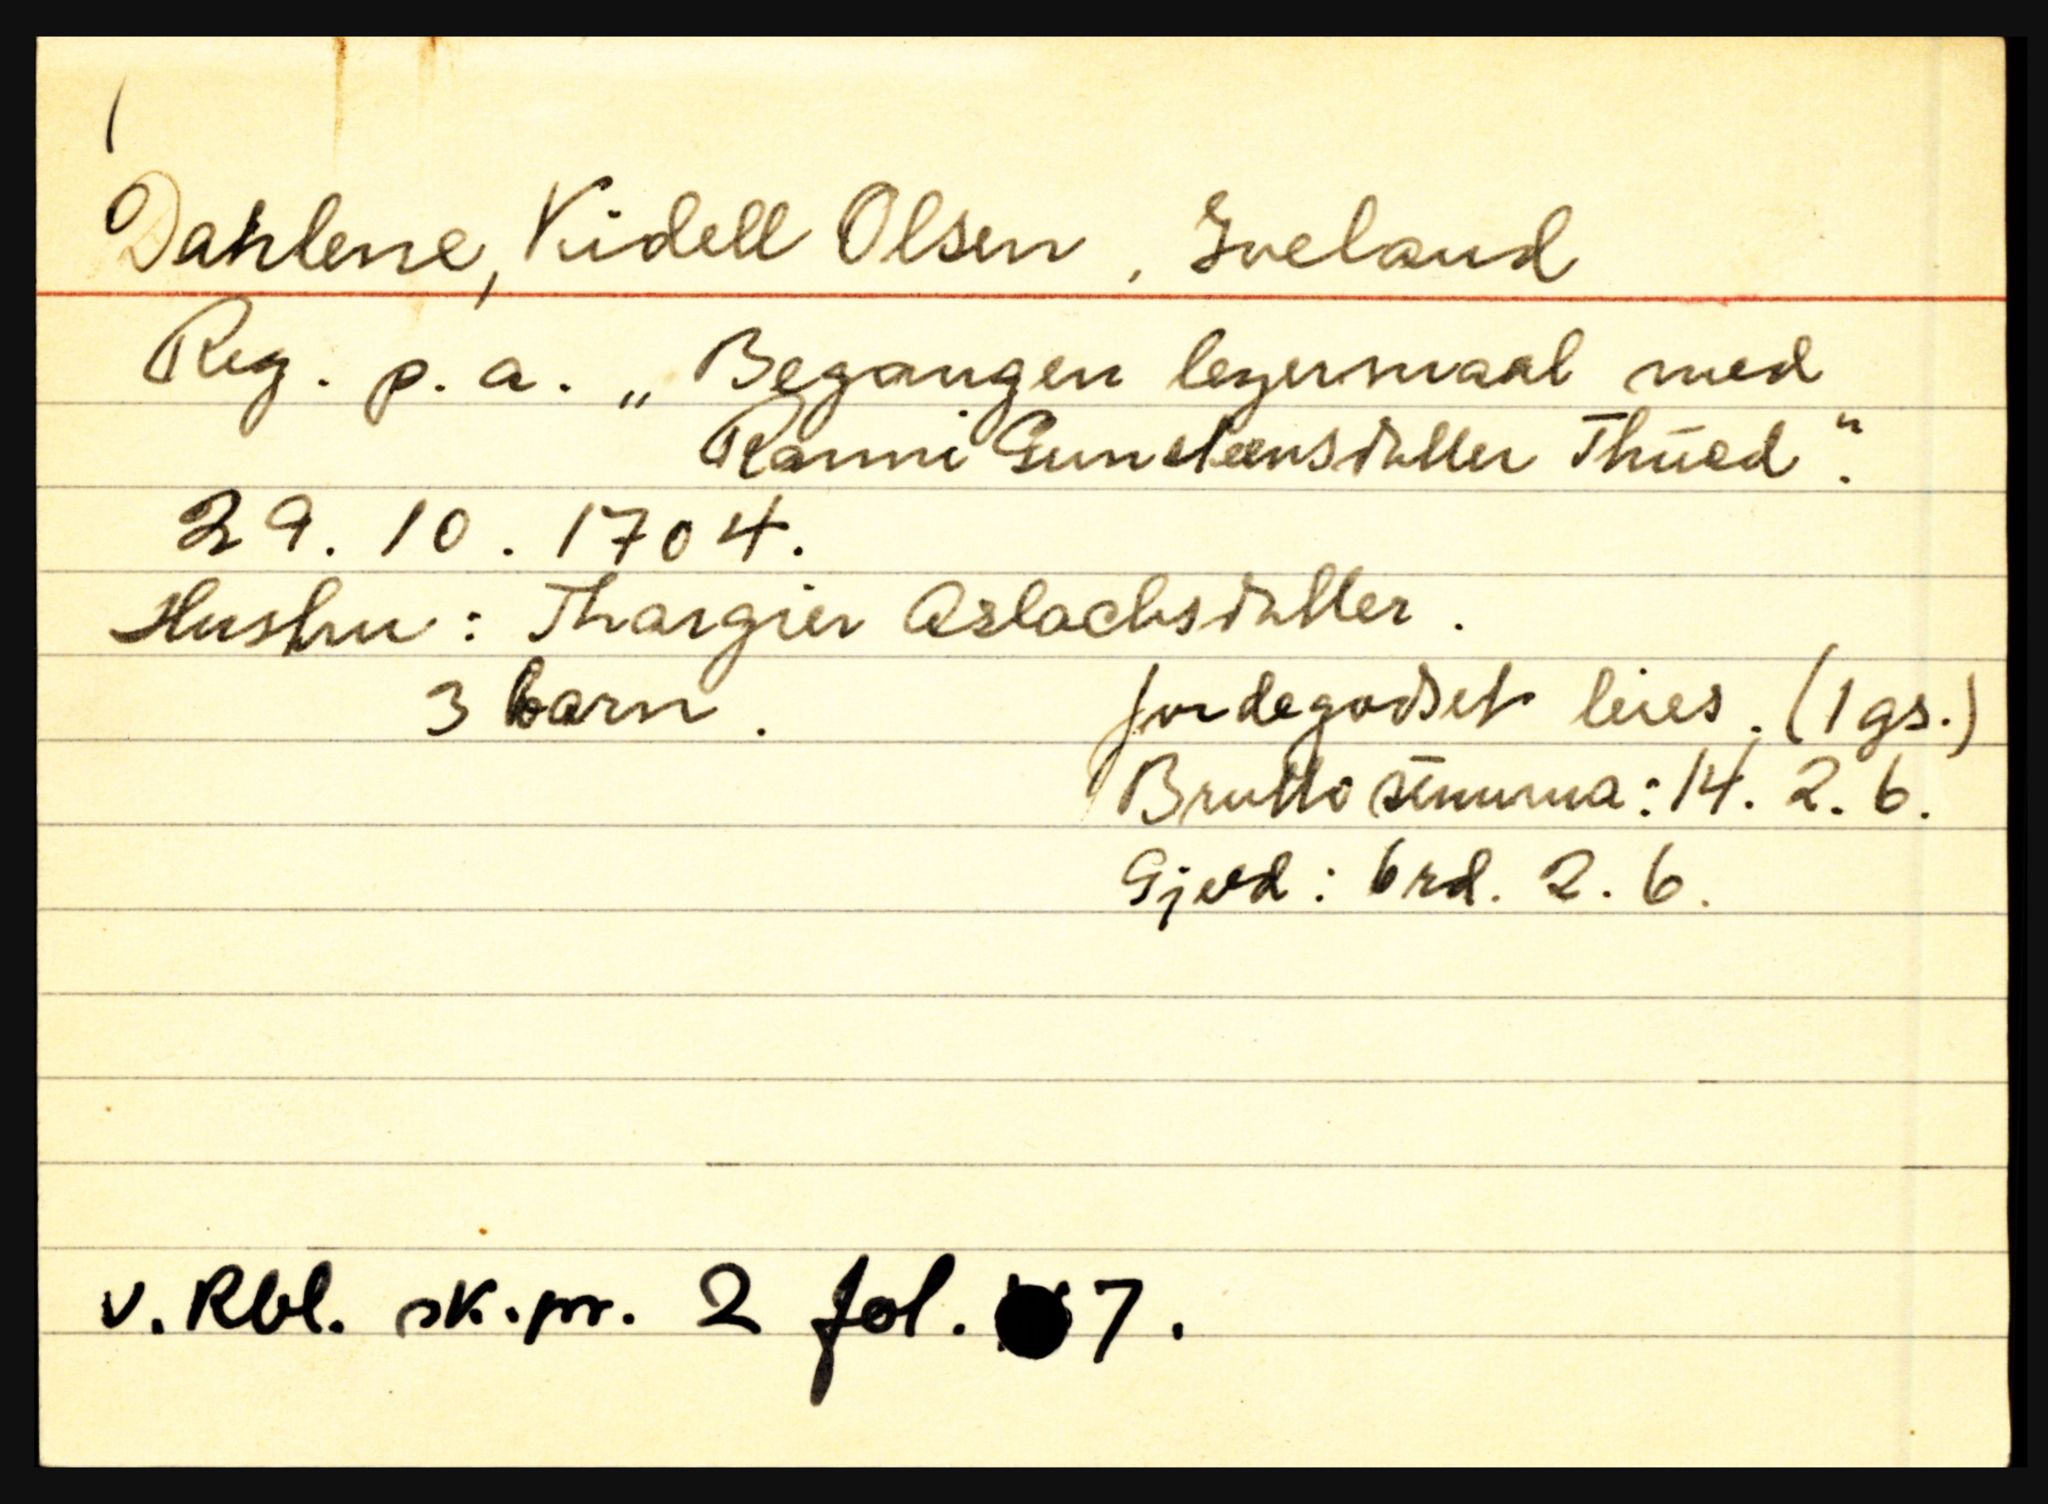 Dahlene, Kidell Olsen, Iveland
Reg. p.a. „Begangen leyermaal med
Ranni Gundersdatter Thued".
29.10.1704.
Hustru: Thargier Aslachsdatter.
3 barn.
Jordegodset leies. (1 gs.)
Brutto summa: 14. 2. 6.
Gjeld: 6 rd. 2. 6.
v. Rbl. sk.pr. 2 fol. 7.